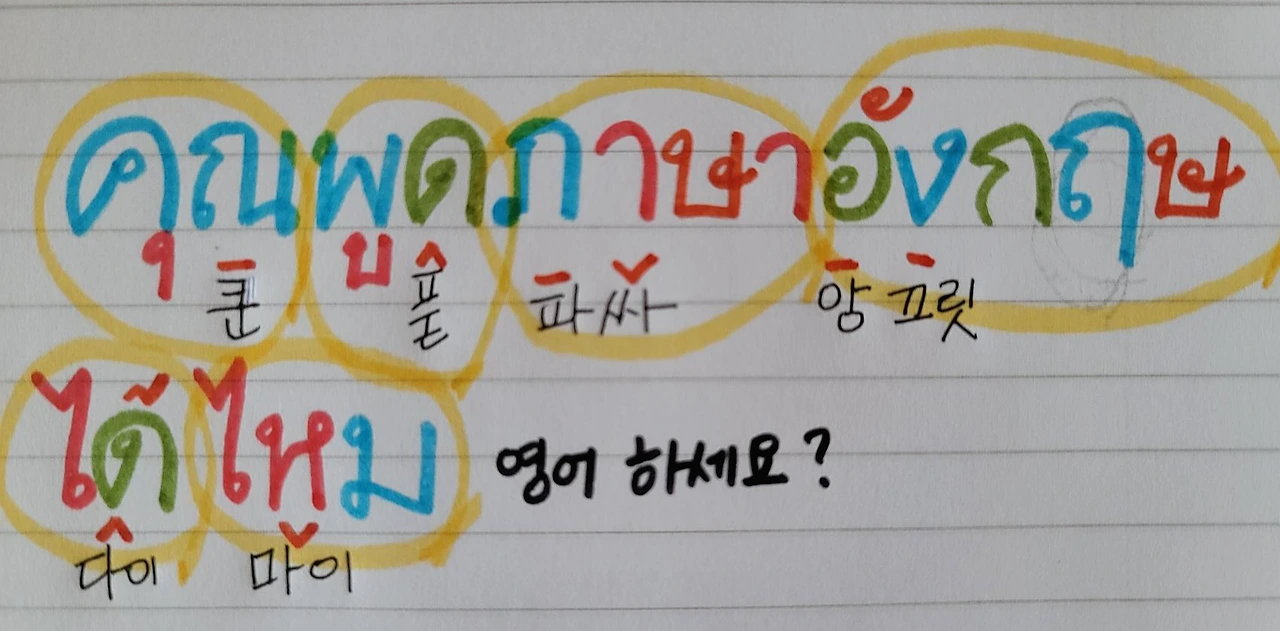 คุณพูดภาษาอังกฤษ
쿤 푿 파싸 앙 끄릿
ได้ไหม 영어 하세요?
다이 마이